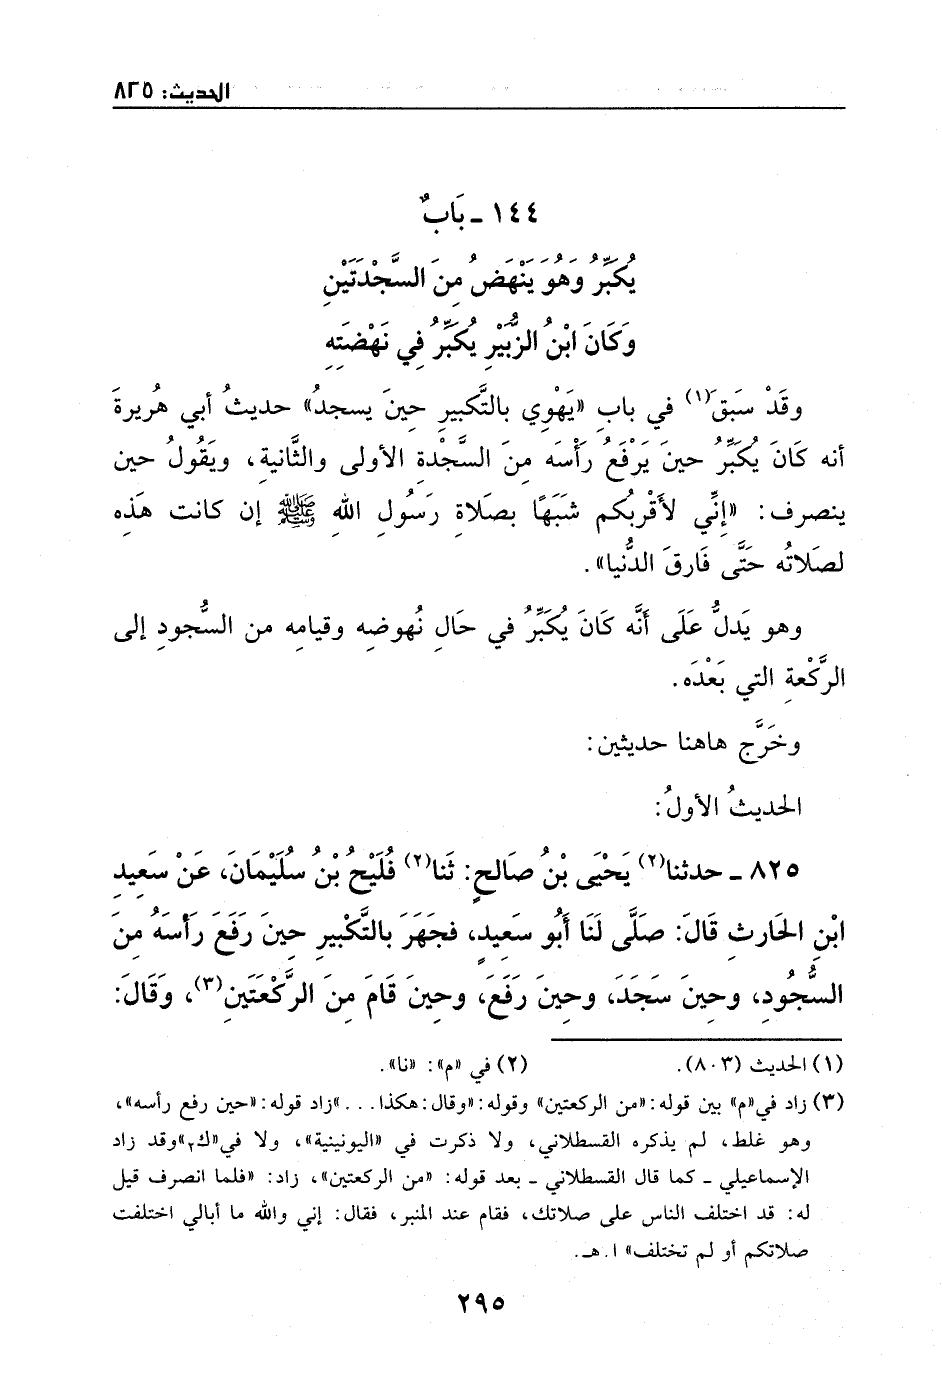 الحديث: ٨٢٥
١٤٤ ـ بَابٌ
يُكَبِّرُ وَهُوَ يَنْهَضُ مِنَ السَّجْدَتَيْنِ
وَكَانَ ابْنُ الزُّبَيْرِ يُكَبِّرُ فِي نَهْضَتِهِ
وقَدْ سَبَقَ(١) في بابِ «يَهْوِي بالتَّكبيرِ حينَ يسجدُ» حديثُ أبي هُريرةَ
أنه كَانَ يُكَبِّرُ حينَ يَرْفَعُ رَأْسَه مِنَ السَّجْدة الأولى والثَّانية، ويَقُولُ حين
ينصرف: «إنِّي لأَقْرِبُكم شَبَهًا بصَلاةِ رَسُولِ اللهِ ﷺ إن كانت هَذِه
لصَلاتُه حَتَّى فَارقَ الدُّنيا».
وهو يَدلُّ عَلَى أَنَّه كَانَ يُكَبِّرُ في حَالِ نُهوضِه وقيامِه من السُّجودِ إلى
الرَّكْعةِ التي بَعْدَه.
وخَرَّج هاهنا حديثين:
الحديثُ الأولُ:
٨٢٥ ـ حدثنا(٢) يَحْيَى بْنُ صَالحٍ: ثَنا(٢) فُلَيْحُ بْنُ سُلَيْمَانَ، عَنْ سَعِيدِ
ابْنِ الحَارِثِ قَالَ: صَلَّى لَنَا أَبُو سَعِيدٍ، فجَهَرَ بالتَّكْبيرِ حِينَ رَفَعَ رَأْسَهُ مِنَ
السُّجُودِ، وحِينَ سَجَدَ، وحِينَ رَفَعَ، وحِينَ قَامَ مِنَ الرَّكْعَتَينِ(٣)، وَقَالَ:
(١) الحديث (٨٠٣). (٢) في «م»: «نا».
(٣) زاد في«م» بين قوله: «من الركعتين» وقوله: «وقال: هكذا...»زاد قوله: «حين رفع رأسه»،
وهو غلط، لم يذكره القسطلاني، ولا ذكرت في «اليونينية»، ولا في«ك٢»وقد زاد
الإسماعيلي ـ كما قال القسطلاني ـ بعد قوله: «من الركعتين»، زاد: «فلما انصرف قيل
له: قد اختلف الناس على صلاتك، فقام عند المنبر، فقال: إني والله ما أبالي اختلفت
صلاتكم أو لم تختلف» ا.هـ.
٢٩٥